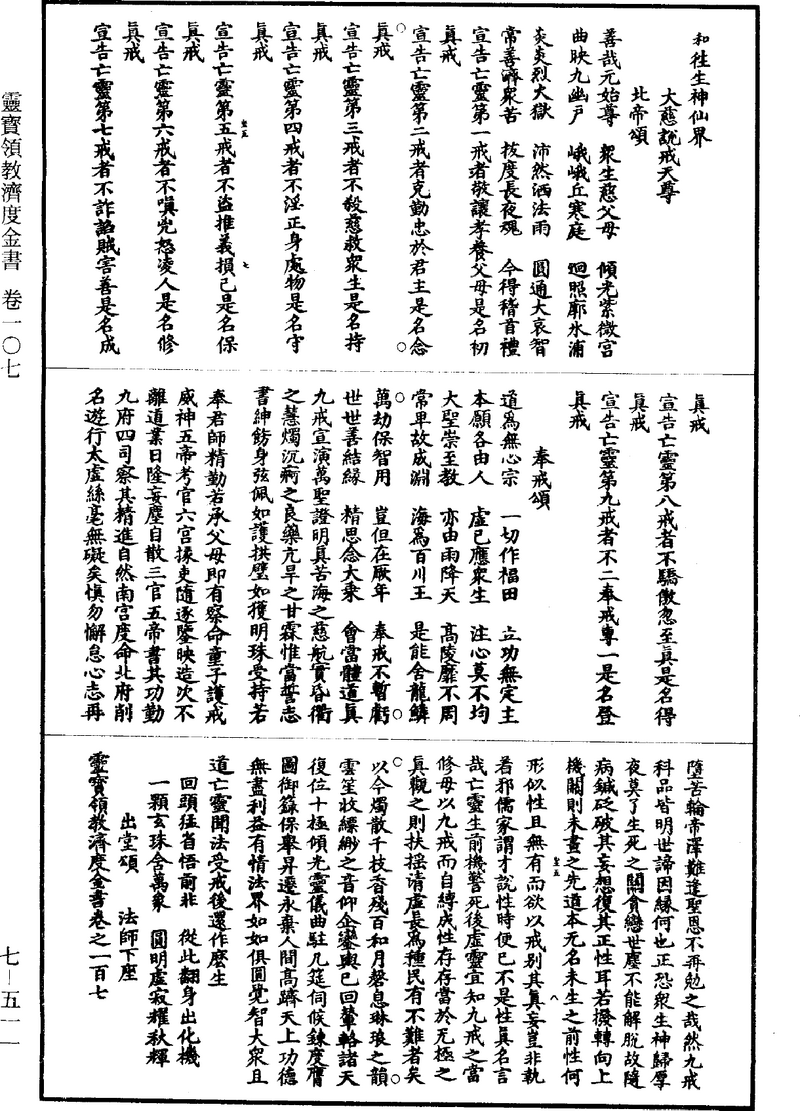 靈寶領教濟度金書　卷一〇七
七—五一一
和往生神仙界
大慈說戒天尊
北帝頌
善哉元始尊　衆生慈父母　傾光紫微宮
曲映九幽戶　峨峨丘寒庭　迴照廓水浦
炎炎烈火獄　沛然洒法雨　圓通大哀智
常善濟衆苦　拔度長夜魂　今得稽首禮
宣告亡靈第一戒者敬讓孝養父母是名初
真戒
宣告亡靈第二戒者克勤忠於君主是名念
真戒
宣告亡靈第三戒者不殺慈救衆生是名持
真戒
宣告亡靈第四戒者不淫正身處物是名守
真戒
宣告亡靈第五戒者不盜推義損己是名保
真戒
宣告亡靈第六戒者不嗔兇怒凌人是名修
真戒
宣告亡靈第七戒者不詐諂賊害善是名成
真戒
宣告亡靈第八戒者不驕傲忽至真是名得
真戒
宣告亡靈第九戒者不二奉戒專一是名登
真戒
奉戒頌
道爲無心宗　一切作福田　立功無定主
本願各由人　虛己應衆生　注心莫不均
大聖崇至教　亦由雨降天　高陵靡不周
常卑故成淵　海爲百川王　是能舍龍鱗
萬劫保智用　豈但在厥年　奉戒不暫虧
世世善結緣　精思念大乘　會當體道真
九戒宣演萬聖證明真苦海之慈航實昏衢
之慧燭沉痾之良藥亢旱之甘霖惟當誓志
書紳飭身弦佩如護拱璧如獲明珠受持若
奉君師精勤若承父母即有察命童子護戒
威神五帝考官六宮掾吏隨逐鑒映造次不
離道業日隆妄塵自散三官五帝書其功勤
九府四司察其精進自然南宮度命北府削
名遊行太虛絲毫無礙矣慎勿懈怠心志再
墮苦輪帝澤難逢聖恩不再勉之哉然九戒
科品皆明世諦因緣何也正恐衆生神歸厚
夜莫了生死之關貪戀世塵不能解脫故隨
病鍼砭破其妄想復其正性耳若撥轉向上
機關則未畫之先道本无名未生之前性何
形似性且無有而欲以戒別其真妄豈非執
着邪儒家謂才說性時便已不是性真名言
哉亡靈生前機警死後虛靈宜知九戒之當
修毋以九戒而自縛成性存存當於无極之
真觀之則扶搖清虛長爲種民有不難者矣
以今燭散千枝香殘百和月磬息琳琅之韻
雲笙收縹緲之音仰企鑾輿已回輦輅諸天
復位十極傾光靈儀曲駐几筵伺候鍊度膺
圖御籙保舉昇遷永棄人間高躋天上功德
無盡利益有情法界如如俱圓覺智大衆且
道亡靈聞法受戒後還作麽生
回頭猛省悟前非　從此翻身出化機
一顆玄珠含萬象　圓明虛寂耀秋輝
出堂頌　法師下座
靈寶領教濟度金書卷之一百七